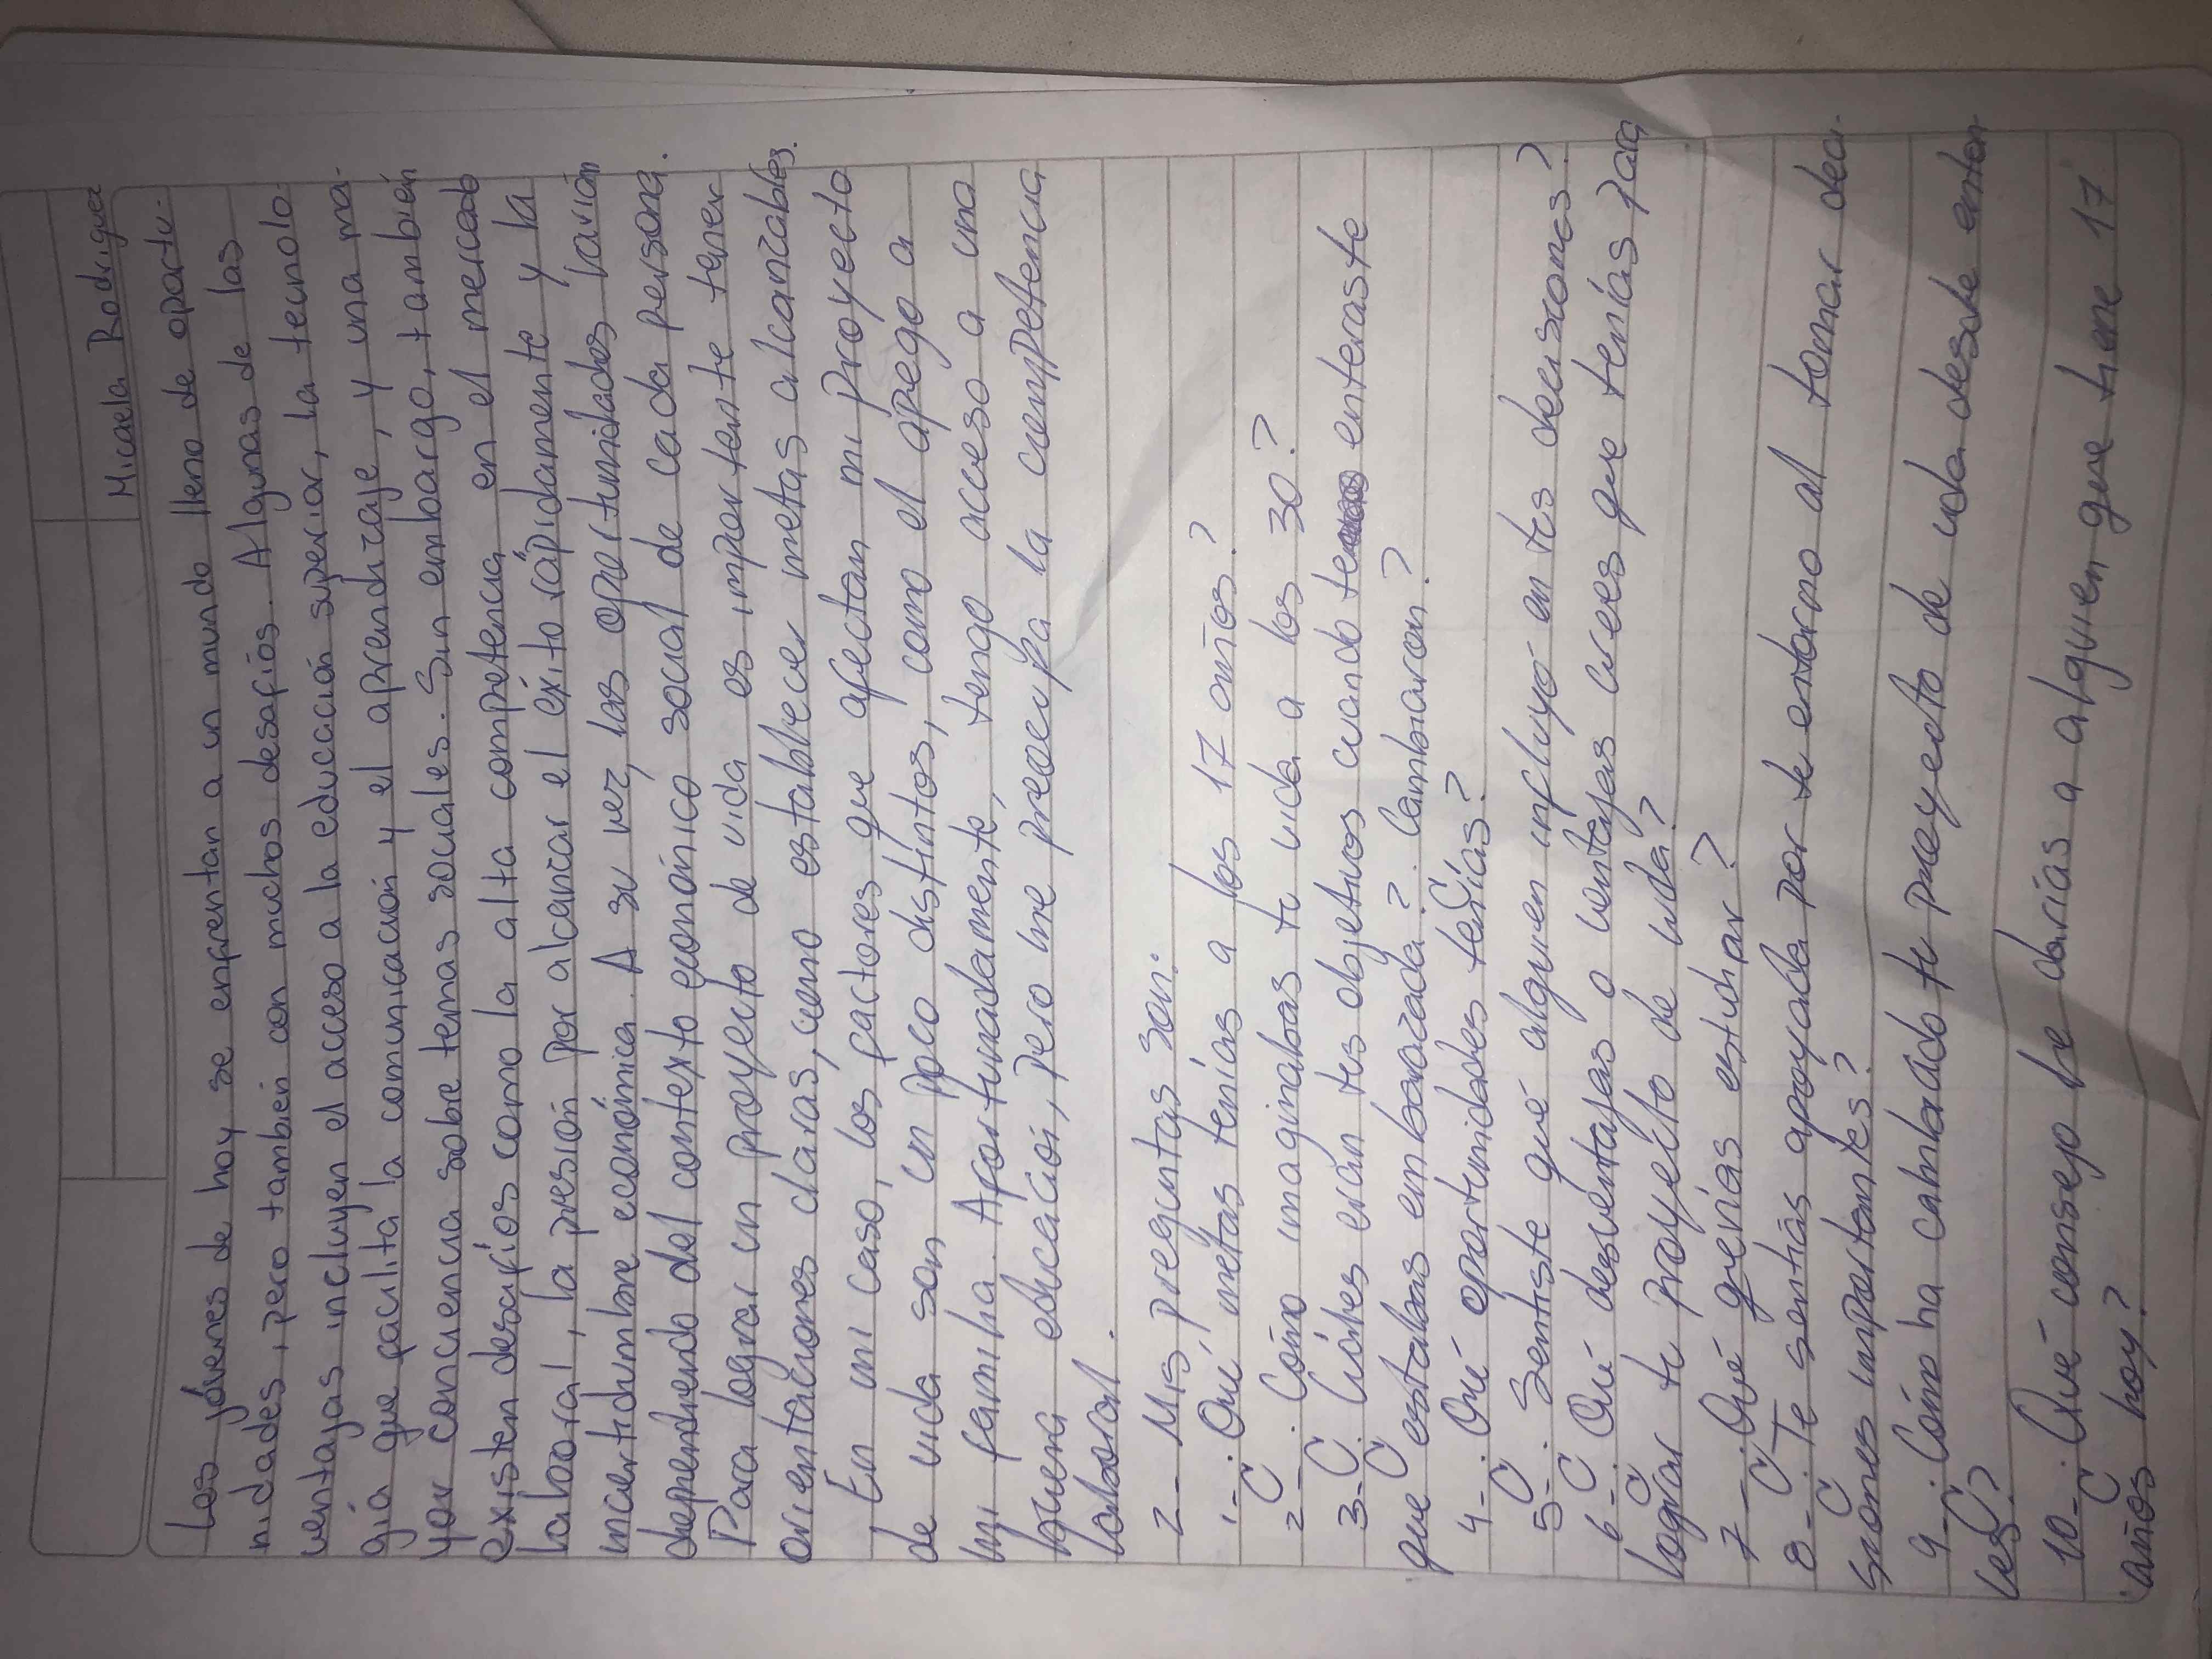 Micaela Rodriguez
Los jóvenes de hoy se enfrentan a un mundo lleno de oportu-
nidades, pero también con muchos desafíos. Algunas de las
ventajas incluyen el acceso a la educación superior, la tecnolo-
gía que facilita la comunicación y el aprendizaje, y una ma-
yor conciencia sobre temas sociales. Sin embargo, también
existen desafíos como la alta competencia en el mercado
laboral, la presión por alcanzar el éxito rápidamente y la
incertidumbre económica. A su vez, las oportunidades varían
dependiendo del contexto económico social de cada persona.
Para lograr un proyecto de vida es importante tener
orientaciones claras, como establecer metas alcanzables.
En mi caso, los factores que afectan mi proyecto
de vida son un poco distintos, como el apego a
mi familia. Afortunadamente, tengo acceso a una
buena educación, pero me preocupa la competencia
laboral.
2_ Mis preguntas son:
1-¿Qué metas tenías a los 17 años?
2-¿Cómo imaginabas tu vida a los 30?
3-¿Cuáles eran tus objetivos cuando te enteraste
que estabas embarazada? ¿Cambiaron?
4-¿Qué oportunidades tenías?
5-¿Sentiste qué alguien influyó en tus decisiones?
6-¿Qué desventajas o ventajas crees que tenías para
lograr tu proyecto de vida?
7-¿Qué querías estudiar?
8-¿Te sentías apoyada por tu entorno al tomar deci-
siones importantes?
9-¿Cómo ha cambiado tu proyecto de vida desde enton-
ces?
10-¿Qué consejo le darías a alguien que tiene 17
años hoy?